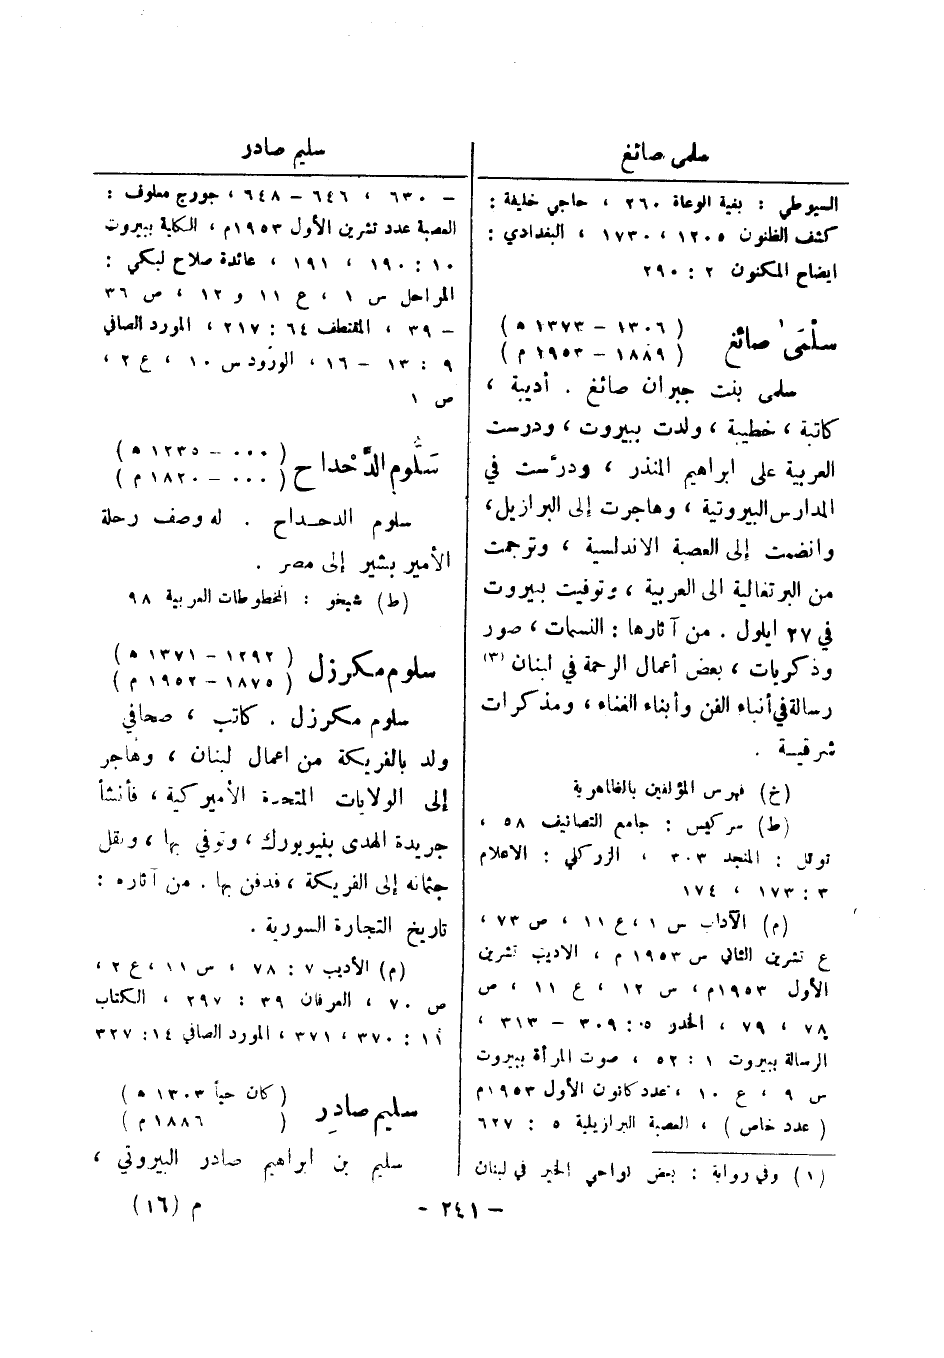 سلمى صائغ
السيوطي : بغية الوعاة ٢٦٠ ، حاجي خليفة :
كشف الظنون ١٢٠٥ ، ١٧٣٠ ، البغدادي :
ايضاح المكنون ٢ : ٢٩٠
سلْمَى صائغ
( ١٣٠٦ – ١٣٧٣ ه )
( ١٨٨٩ – ١٩٥٣ م )
سلمى بنت جبران صائغ . أديبة ،
كاتبة ، خطيبة ، ولدت ببيروت ، ودرست
العربية على ابراهيم المنذر ، ودرّست في
المدارس البيروتية ، وهاجرت إلى البرازيل ،
وانضمت إلى العصبة الاندلسية ، وترجمت
من البرتغالية الى العربية ، وتوفيت ببيروت
في ٢٧ ايلول . من آثارها : النسمات ، صور
وذكريات ، بعض أعمال الرحمة في لبنان (٣)
رسالة في أنباء الفن وأبناء الغناء ، ومذكرات
شرقية .
(خ) فهرس المؤلفين بالظاهرية
(ط) سركيس : جامع التصانيف ٥٨ ،
توتل : المنجد ٣٠٣ ، الزركلي : الاعلام
٣ : ١٧٣ ، ١٧٤
(م) الآداب س ١ ، ع ١١ ، ص ٧٣ ،
ع تشرين الثاني س ١٩٥٣ م ، الاديب تشرين
الأول ١٩٥٣م ، س ١٢ ، ع ١١ ، ص
٧٨ ، ٧٩ ، الخدر ٥ : ٣٠٩ – ٣١٣ ،
الرسالة ببيروت ١ : ٥٢ ، صوت المرأة ببيروت
س ٩ ، ع ١٠ ، عدد كانون الأول ١٩٥٣م
( عدد خاص ) ، العصبة البرازيلية ٥ : ٦٢٧
(١) وفي رواية : بعض نواحي الخير في لبنان
سليم صادر
– ٦٣٠ ، ٦٤٦ – ٦٤٨ ، جورج معلوف :
العصبة عدد تشرين الأول ١٩٥٣م ، الكلية ببيروت
١٠ : ١٩٠ ، ١٩١ ، عائدة صلاح لبكي :
المراحل س ١ ، ع ١١ و ١٢ ، ص ٣٦
– ٣٩ ، المقتطف ٦٤ : ٢١٧ ، المورد الصافي
٩ : ١٣ – ١٦ ، الورود س ١٠ ، ع ٢ ،
ص ١
سَلُّوم الدَّحْداح
( ٠٠٠ – ١٢٣٥ ه )
( ٠٠٠ – ١٨٢٠ م )
سلوم الدحداح . له وصف رحلة
الأمير بشير إلى مصر .
(ط) شيخو : المخطوطات العربية ٩٨
سلوم مكرزل
( ١٢٩٢ – ١٣٧١ ه )
( ١٨٧٥ – ١٩٥٢ م )
سلوم مكرزل . كاتب ، صحافي
ولد بالفريكة من اعمال لبنان ، وهاجر
إلى الولايات المتحدة الأميركية ، فأنشأ
جريدة الهدى بنيويورك ، وتوفي بها ، ونقل
جثمانه إلى الفريكة ، فدفن بها . من آثاره :
تاريخ التجارة السورية .
(م) الأديب ٧ : ٧٨ ، س ١١ ، ع ٢ ،
ص ٧٠ ، العرفان ٣٩ : ٢٩٧ ، الكتاب
١١ : ٣٧٠ ، ٣٧١ ، المورد الصافي ١٤ : ٣٢٧
سليم صادِر
( كان حياً ١٣٠٣ ه )
( ١٨٨٦ م )
سليم بن ابراهيم صادر البيروتي ،
– ٢٤١ –
م (١٦)